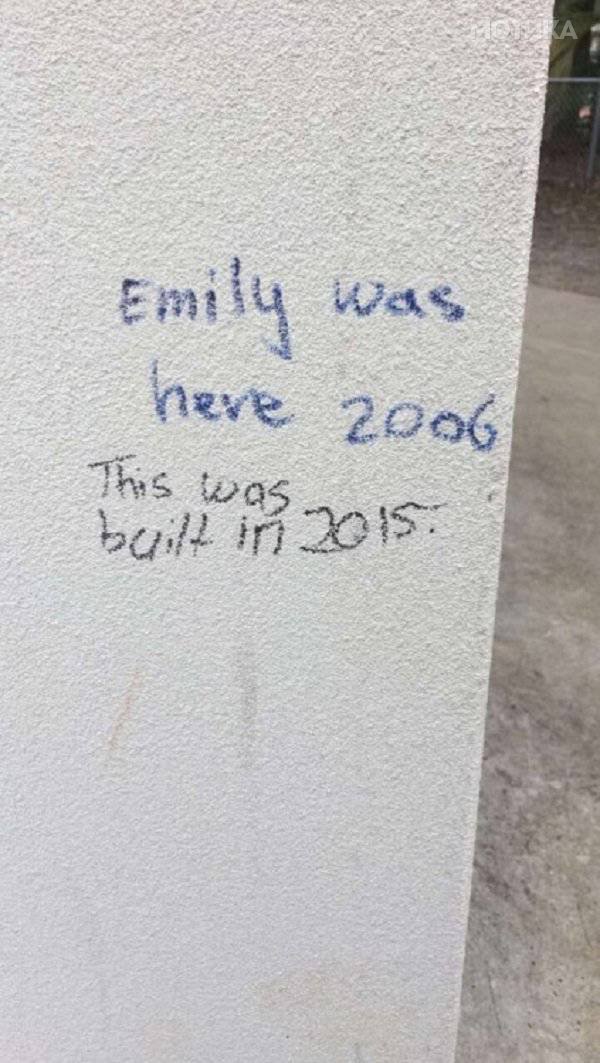 МОТИКА
Emily was
here 2006
This was
built in 2015.